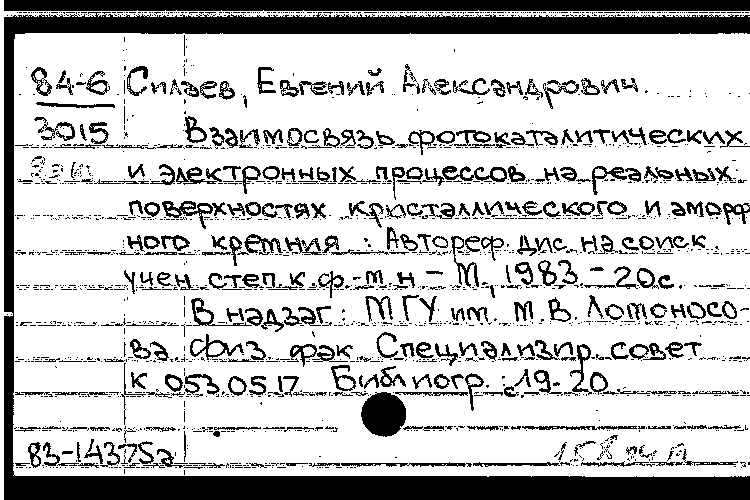 84-6 Силаев, Евгений Александрович.
3015 Взаимосвязь фотокаталитических
и электронных процессов на реальных
поверхностях кристаллического и аморф
ного кремния : Автореф. дис. на соиск.
учен. степ. к. ф.-м. н - М., 1983 - 20с.
В надзаг: МГУ им. М.В. Ломоносо-
ва. Физ. фак. Специализир. совет
К 053.05.17 Библиогр.: с.19-20.
83-14375а